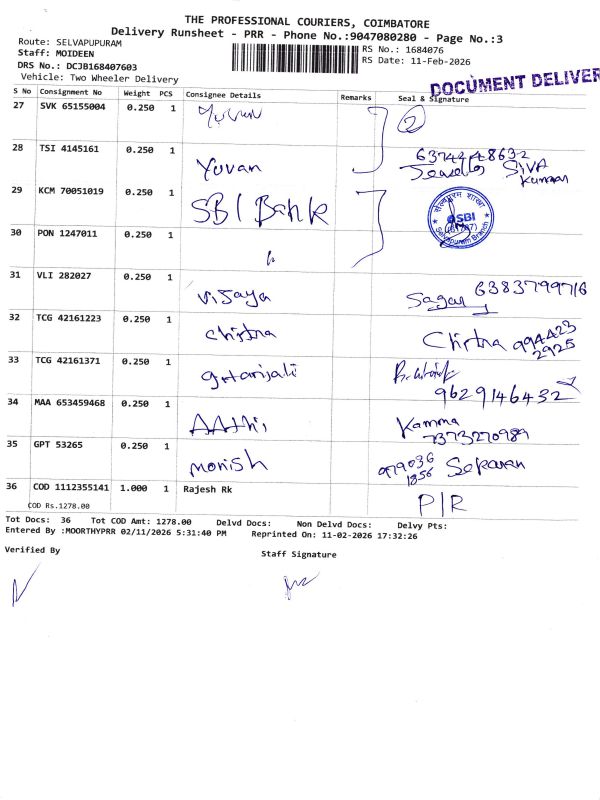 THE PROFESSIONAL COURIERS, COIMBATORE
Delivery Runsheet - PRR - Phone No.:9047080280 - Page No.:3
Route: SELVAPUPURAM
Staff: MOIDEEN
DRS No.: DCJB168407603
Vehicle: Two Wheeler Delivery
RS No.: 1684076
RS Date: 11-Feb-2026
DOCUMENT DELIVER
S No Consignment No Weight PCS Consignee Details Remarks Seal & Signature
27 SVK 65155004 0.250 1 Yuvan 2
28 TSI 4145161 0.250 1 Yuvan 6374448632
SIVA Kumar
29 KCM 70051019 0.250 1 SBI Bank
सेल्वपुरम शाखा
SBI
Selvapuram Branch
30 PON 1247011 0.250 1 "
31 VLI 282027 0.250 1 Vijaya Sagar 6383799716
32 TCG 42161223 0.250 1 Chirtna Chirtna 994423
2925
33 TCG 42161371 0.250 1 gitanjali
9629146432
34 MAA 653459468 0.250 1 AAthi Kamma
7373270989
35 GPT 53265 0.250 1 monish 979036
1356 Sekaran
36 COD 1112355141 1.000 1 Rajesh Rk P/R
COD Rs.1278.00
Tot Docs: 36 Tot COD Amt: 1278.00 Delvd Docs: Non Delvd Docs: Delvy Pts:
Entered By :MOORTHYPRR 02/11/2026 5:31:40 PM Reprinted On: 11-02-2026 17:32:26
Verified By Staff Signature